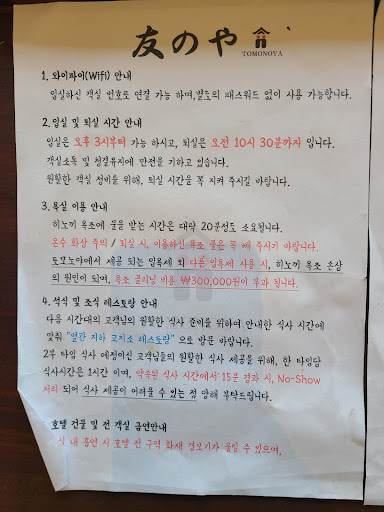 友のや
TOMONOYA
1. 와이파이(Wifi) 안내
입실하신 객실 번호로 연결 가능 하며,별도의 패스워드 없이 사용 가능합니다.
2. 입실 및 퇴실 시간 안내
입실은 오후 3시부터 가능 하시고, 퇴실은 오전 10시 30분까지 입니다.
객실소독 및 청결유지에 만전을 기하고 있습니다.
원활한 객실 정비를 위해, 퇴실 시간을 꼭 지켜 주시길 바랍니다.
3. 욕실 이용 안내
히노끼 욕조에 물을 받는 시간은 대략 20분정도 소요됩니다.
온수 화상 주의 / 퇴실 시, 이용하신 욕조 물은 꼭 빼 주시기 바랍니다.
토모노야에서 제공 되는 입욕제 외 다른 입욕제 사용 시, 히노끼 욕조 손상
의 원인이 되며, 욕조 클리닝 비용 ₩300,000원이 부과 됩니다.
4. 석식 및 조식 레스토랑 안내
다음 시간대의 고객님의 원활한 식사 준비를 위하여 안내한 식사 시간에
맞춰 "별관 지하 코지소 레스토랑" 으로 방문 바랍니다.
2부 타임 식사 예정이신 고객님들의 원활한 식사 제공을 위해, 한 타임당
식사시간은 1시간 이며, 약속된 식사 시간에서 15분 경과 시, No-Show
처리 되어 식사 제공이 어려울 수 있는 점 양해 부탁드립니다.
호텔 건물 및 전 객실 금연안내
실 내 흡연 시 호텔 전 구역 화재 경보기가 울릴 수 있으며,